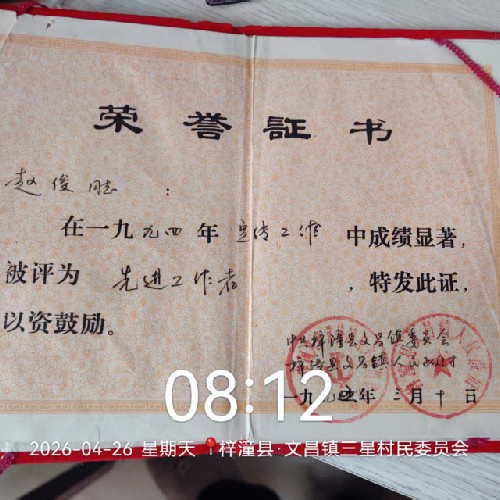 荣誉証书
赵俊同志:
在一九九四年宣传工作中成绩显著,
被评为先进工作者,特发此证,
以资鼓励。
中共梓潼县文昌镇委员会
梓潼县文昌镇人民政府
一九九五年三月十日
08:12
2026-04-26 星期天 梓潼县·文昌镇三星村民委员会